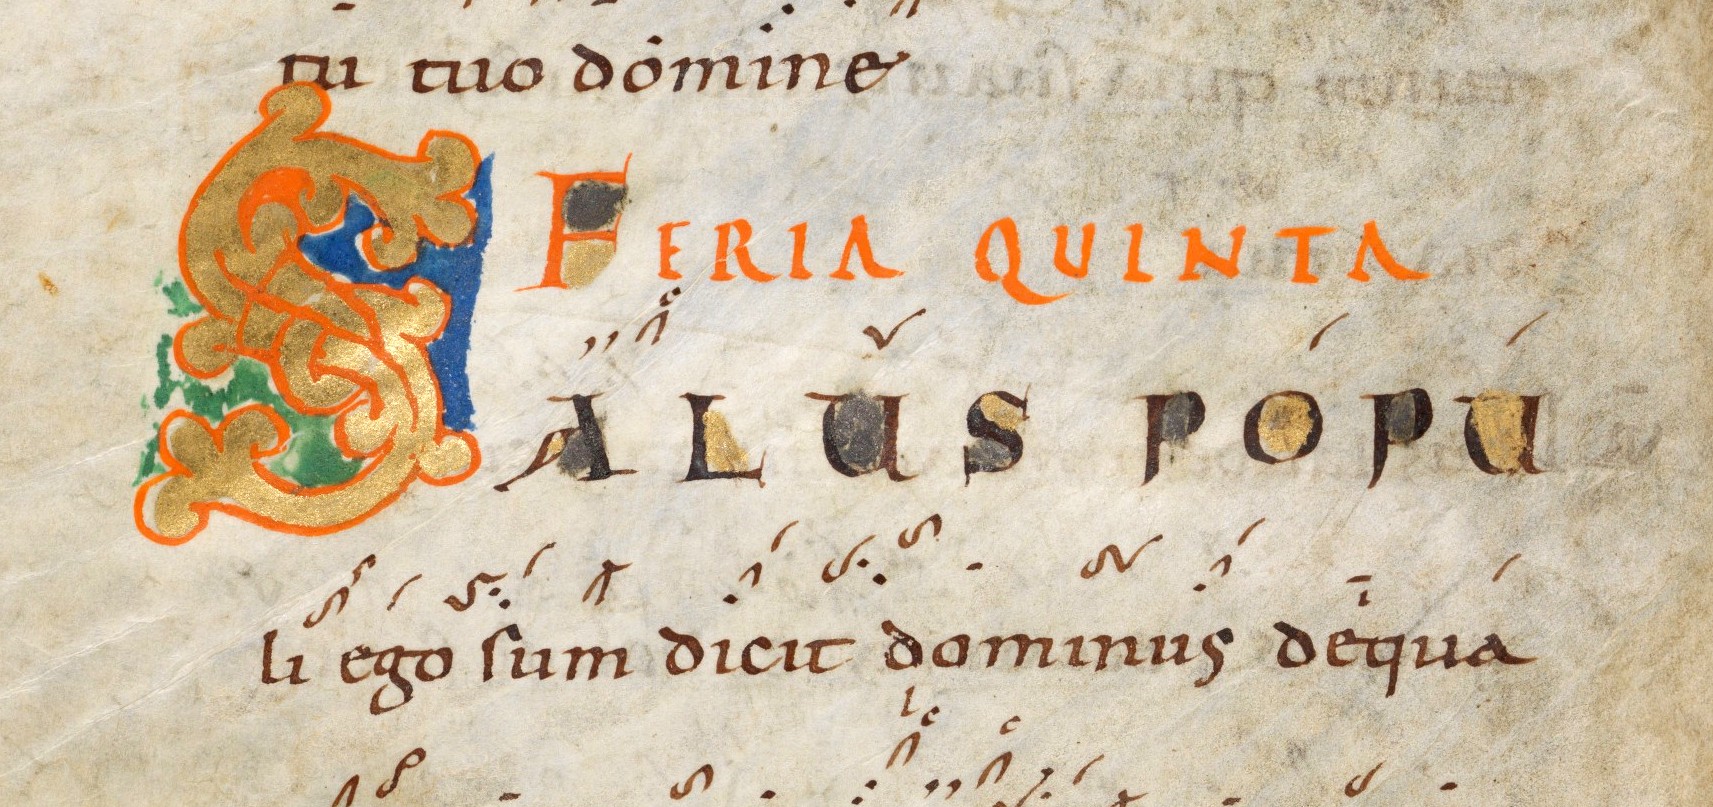 tu tuo domine
FERIA QUINTA
SALUS POPU
li ego sum dicit dominus dequa